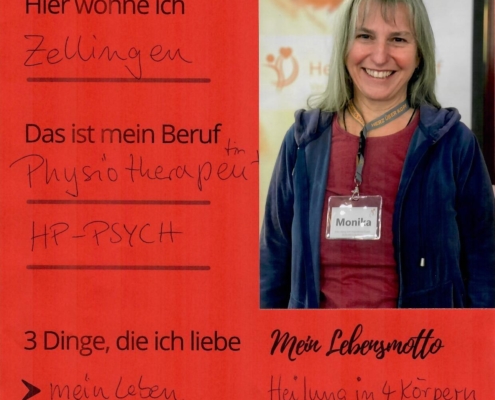 Hier wohne ich
Zellingen
Das ist mein Beruf
Physiotherapeutin
HP-PSYCH
Monika
3 Dinge, die ich liebe
Mein Lebensmotto
mein Leben
Heilung in 4 Körpern